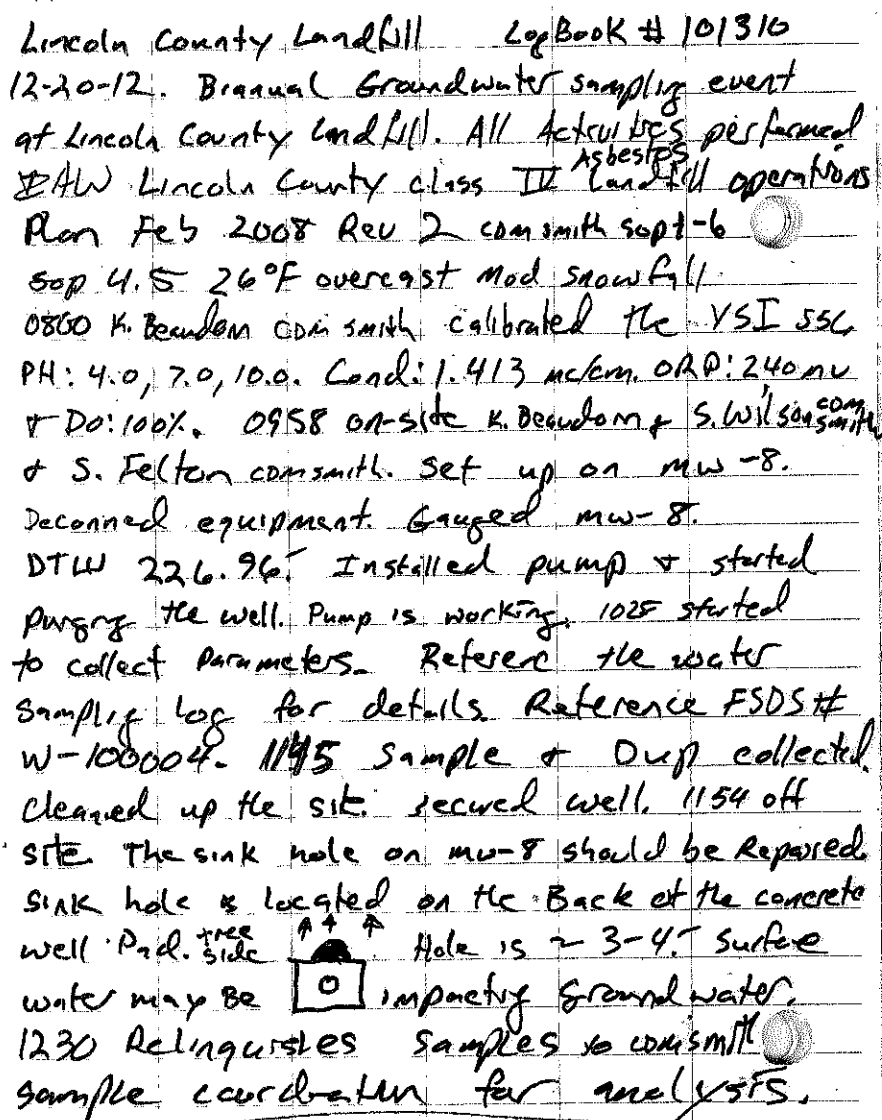 Lincoln County Landfill LogBook # 101310
12-20-12. Bianual Groundwater sampling event
at Lincoln County Landfill. All Activities performed
IAW Lincoln County class IV Asbestos Landfill operations
Plan Feb 2008 Rev 2 CDM Smith sopt-6
sop 4.5 26°F overcast Mod snowfall.
0800 K. Beaudoin CDM Smith calibrated the YSI 556
PH: 4.0, 7.0, 10.0. Cond: 1.413 mc/cm. ORP: 240 mv
+ Do: 100%. 0958 on-site K. Beaudoin + S. Wilson CDM Smith
+ S. Felton CDM Smith. Set up on MW-8.
Deconned equipment. Gauged MW-8.
DTW 226.96.' Installed pump + started
Purging the well. Pump is working. 1025 started
to collect Parameters. Referenc the water
Samplig Log for details. Reference FSDS #
W-100004. 1145 Sample + Dup collected.
Cleaned up the site. secured well. 1154 off
site. The sink hole on MW-8 should be Repaired.
Sink hole is located on the Back of the concrete
well Pad. tree side Hole is ~ 3-4.' Surface
water may Be impacting Groundwater.
1230 Relinquishes Samples to CDM Smith
sample coordinator for analysis.